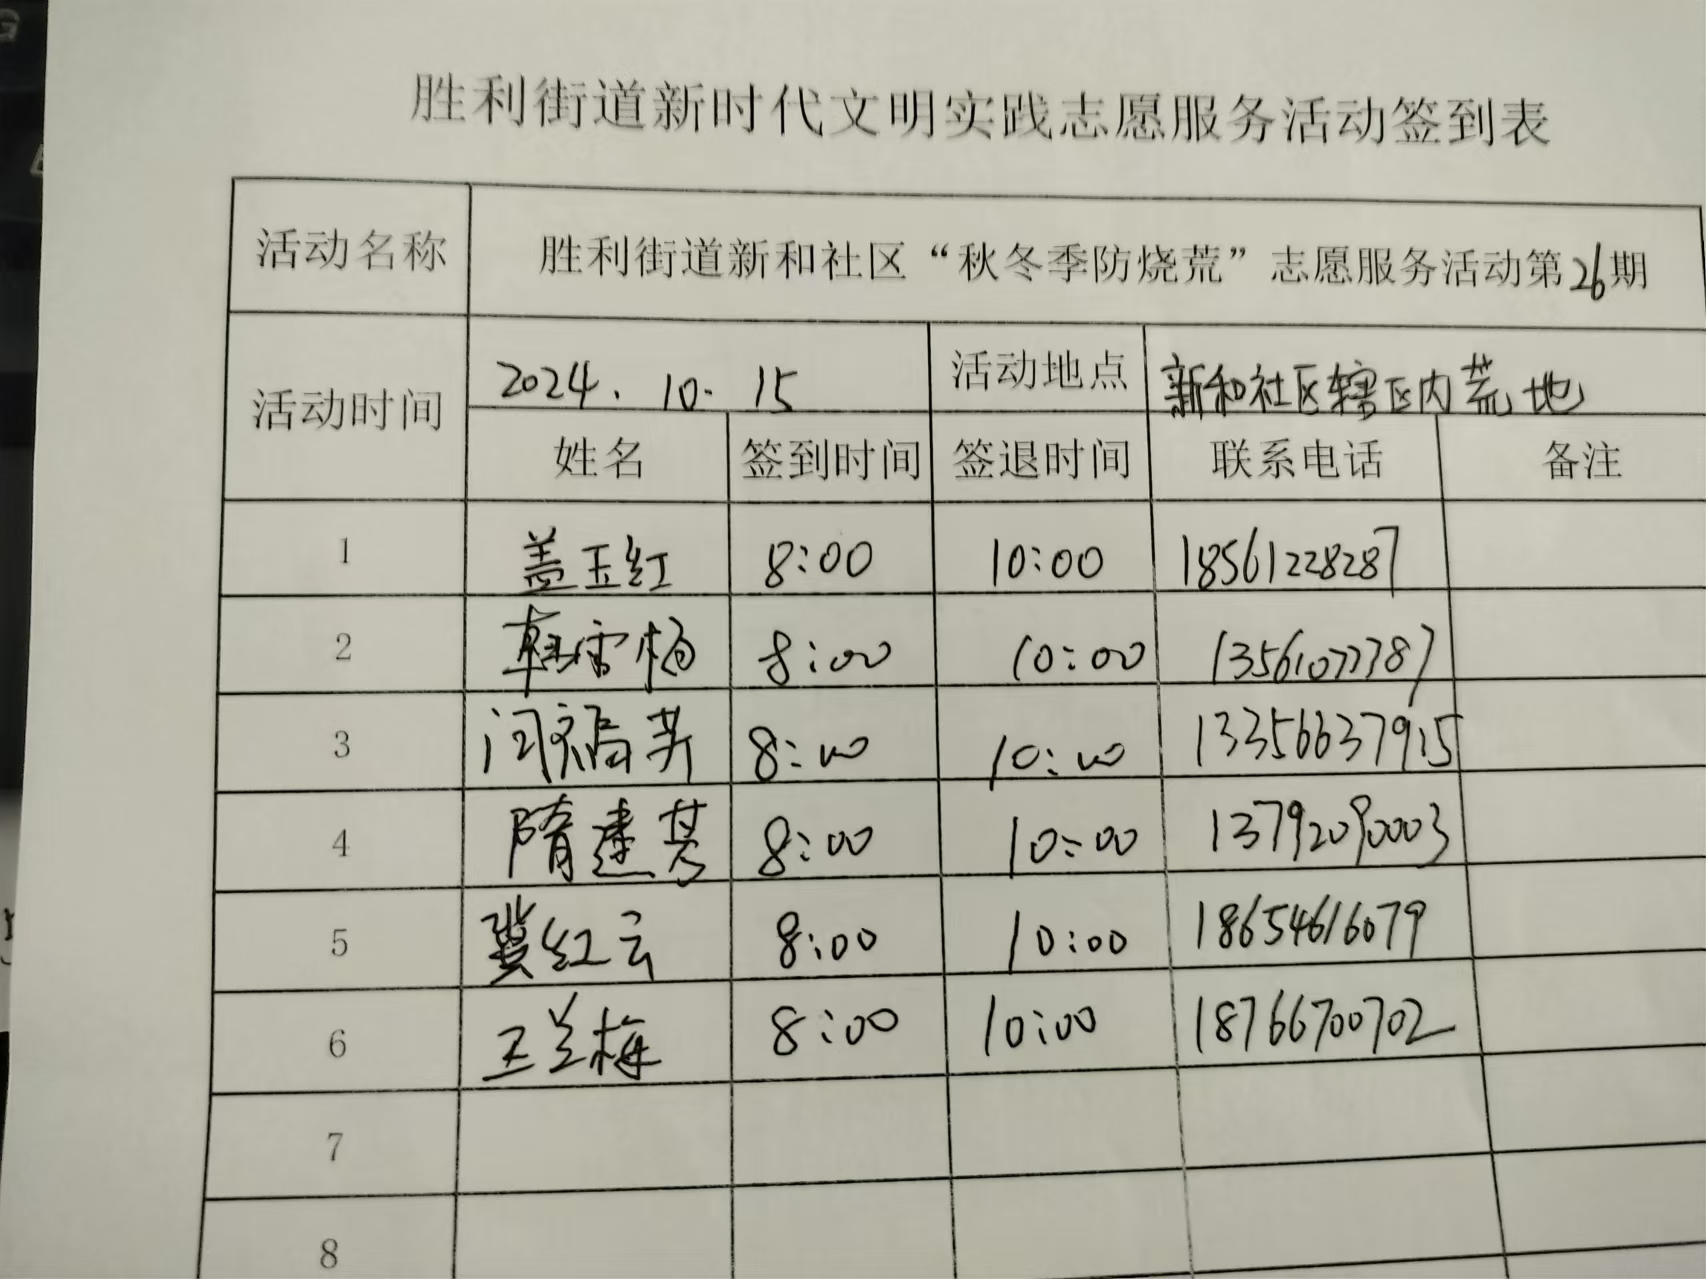 胜利街道新时代文明实践志愿服务活动签到表
活动名称 胜利街道新和社区“秋冬季防烧荒”志愿服务活动第26期
活动时间 2024.10.15 活动地点 新和社区辖区内荒地
姓名 签到时间 签退时间 联系电话 备注
1 盖玉红 8:00 10:00 18561228287
2 韩雪梅 8:00 10:00
3 闫福英 8:00 10:00 13356637915
4 隋建芬 8:00 10:00 13792090003
5 冀红云 8:00 10:00 18654616079
6 王兰梅 8:00 10:00 18766700702
7
8